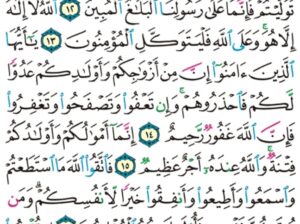 تَوَلَّيْتُمْ فَإِنَّمَا عَلَىٰ رَسُولِنَا ٱلْبَلَٰغُ ٱلْمُبِينُ ١٢ ٱللَّهُ لَآ إِلَٰهَ
إِلَّا هُوَ ۚ وَعَلَى ٱللَّهِ فَلْيَتَوَكَّلِ ٱلْمُؤْمِنُونَ ١٣ يَٰٓأَيُّهَا
ٱلَّذِينَ ءَامَنُوٓا۟ إِنَّ مِنْ أَزْوَٰجِكُمْ وَأَوْلَٰدِكُمْ عَدُوًّا
لَّكُمْ فَٱحْذَرُوهُمْ ۚ وَإِن تَعْفُوا۟ وَتَصْفَحُوا۟ وَتَغْفِرُوا۟
فَإِنَّ ٱللَّهَ غَفُورٌ رَّحِيمٌ ١٤ إِنَّمَآ أَمْوَٰلُكُمْ وَأَوْلَٰدُكُمْ
فِتْنَةٌ ۚ وَٱللَّهُ عِندَهُۥٓ أَجْرٌ عَظِيمٌ ١٥ فَٱتَّقُوا۟ ٱللَّهَ مَا ٱسْتَطَعْتُمْ
وَٱسْمَعُوا۟ وَأَطِيعُوا۟ وَأَنفِقُوا۟ خَيْرًا لِّأَنفُسِكُمْ ۗ وَمَن